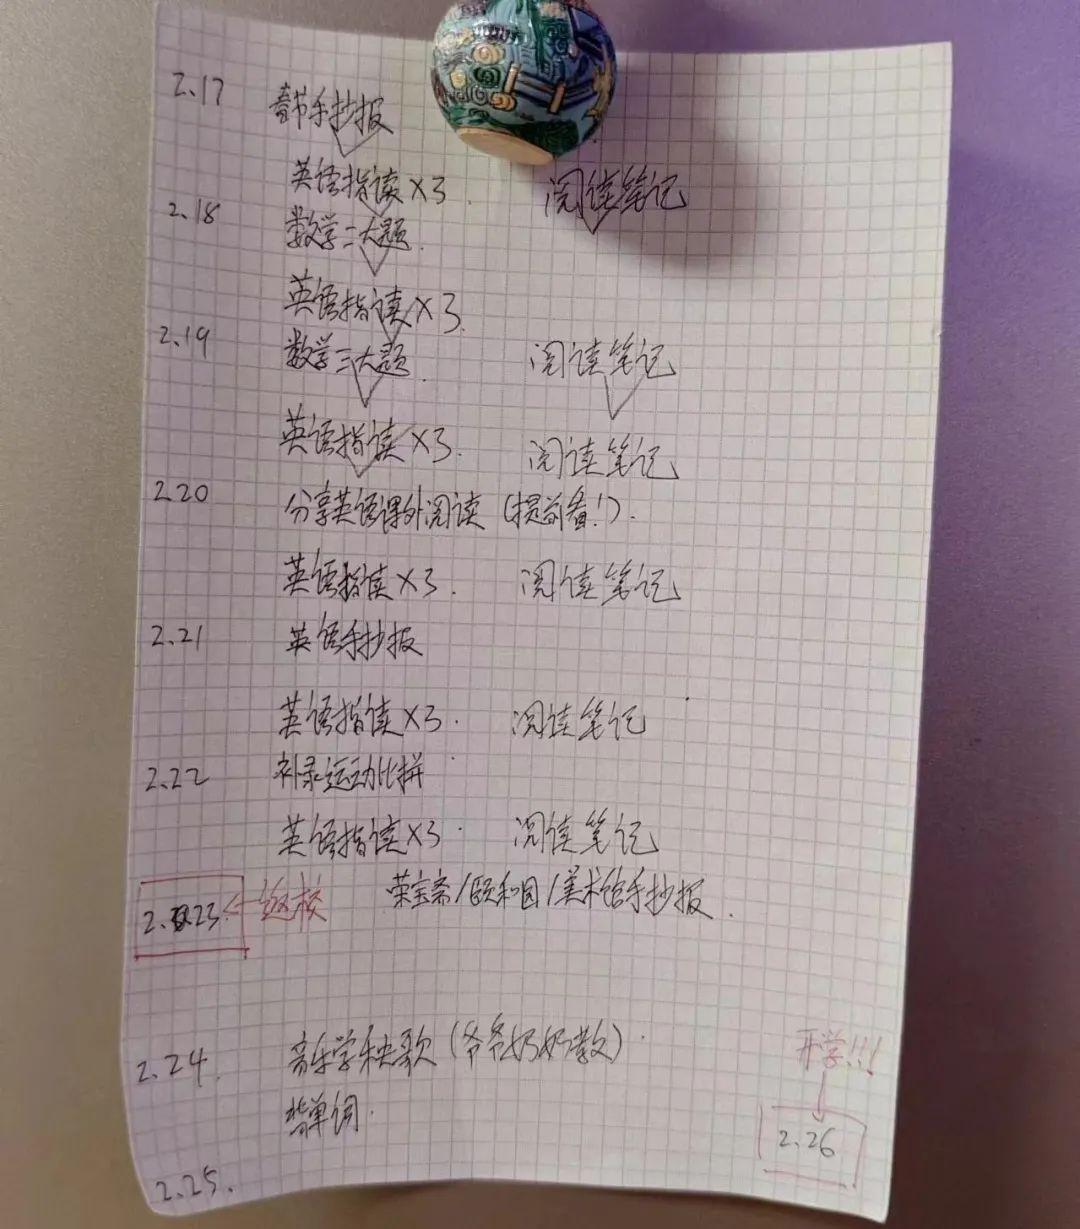 2.17 春节手抄报
英语指读×3. 阅读笔记
2.18 数学二大题.
英语指读×3.
2.19 数学三大题. 阅读笔记
英语指读×3. 阅读笔记
2.20 分享英语课外阅读(提前看!).
英语指读×3. 阅读笔记
2.21 英语手抄报
英语指读×3. 阅读笔记
2.22 补录运动比拼
英语指读×3. 阅读笔记
荣宝斋/颐和园/美术馆手抄报.
2.23. ← 返校
2.24. 音乐学秧歌(爷爷奶奶教).
开学!!!
背单词.
2.26
2.25.